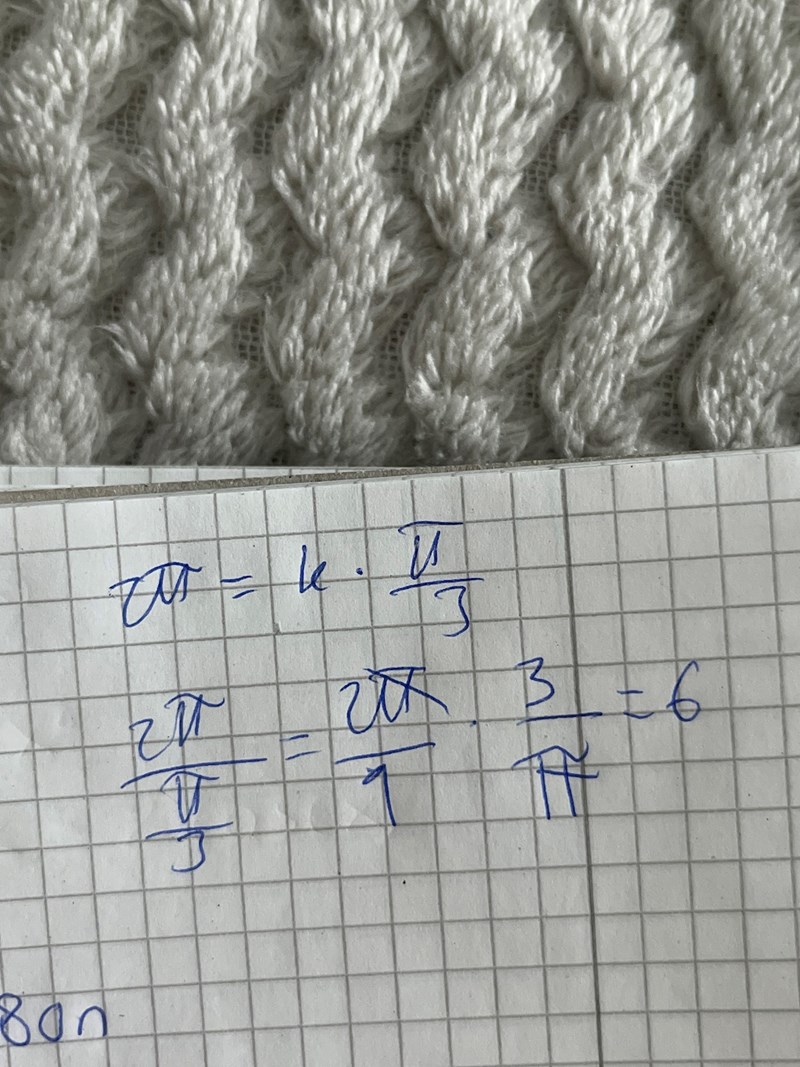 2π = k · π/3
2π/(π/3) = 2π/1 · 3/π = 6
80n